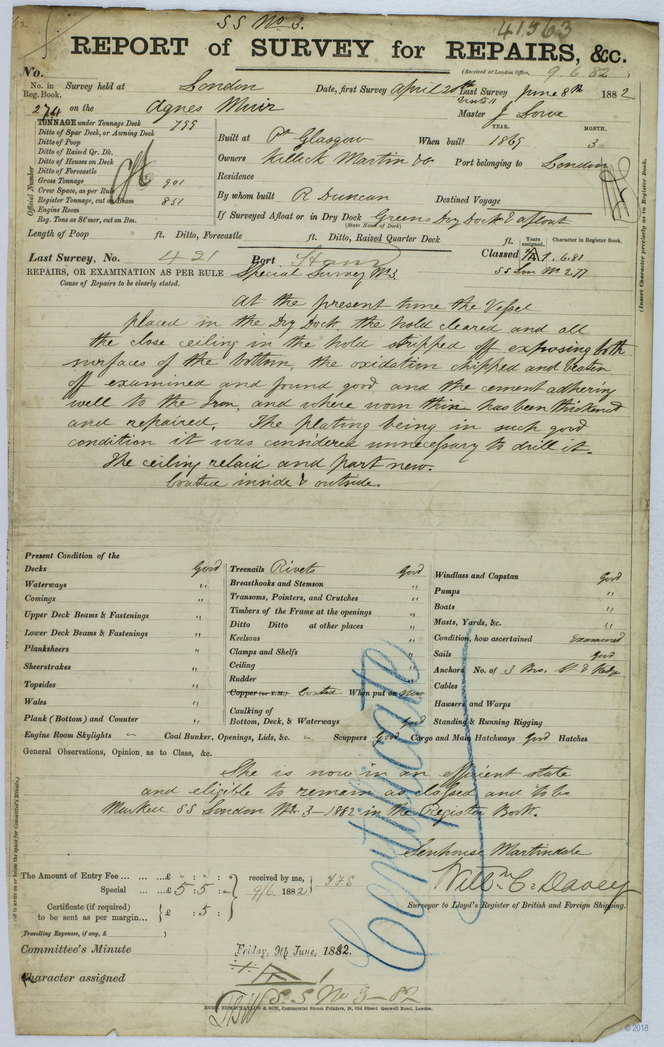 SS No 3.
41563
REPORT of SURVEY for REPAIRS, &c.
(Received at London Office, 9.6.82)
No.
No. in Reg. Book. Survey held at London Date, first Survey April 20th Last Survey June 8th 1882
274 on the Agnes Muir Master J Lowe
TONNAGE under Tonnage Deck 799
Ditto of Spar Deck, or Awning Deck
Ditto of Poop
Ditto of Raised Qr. Dk.
Ditto of Houses on Deck
Ditto of Forecastle
Gross Tonnage 901
Crew Space, as per Rule
Register Tonnage, cut on Beam 851
Engine Room
Reg. Tons as St'mer, cut on Bm.
Official Number
YEAR. MONTH.
Built at Pt Glasgow When built 1869 3
Owners Killick Martin & Co Port belonging to London
Residence
By whom built R Duncan Destined Voyage
If Surveyed Afloat or in Dry Dock Greens Dry Dock & afloat
(State Name of Dock)
Length of Poop ft. Ditto, Forecastle ft. Ditto, Raised Quarter Deck ft.
Years assigned. Character in Register Book.
Last Survey, No. 421 Port Classed A1. 6.81
REPAIRS, OR EXAMINATION AS PER RULE Special Survey No 3. SS Lon No 2.77
Cause of Repairs to be clearly stated.
(Insert Character precisely as in Register Book.
At the present time the Vessel
placed in the Dry Dock. the hold cleared and all
the close ceiling in the hold stripped off exposing both
surfaces of the bottom, the oxidation chipped and beaten
off examined and found good and the cement adhering
well to the Iron, and where worn thin has been thickened
and repaired. The plating being in such good
condition it was considered unnecessary to drill it.
The ceiling relaid and part new.
Coated inside & outside.
Present Condition of the
Decks Good
Waterways "
Comings "
Upper Deck Beams & Fastenings "
Lower Deck Beams & Fastenings "
Planksheers "
Sheerstrakes "
Topsides "
Wales "
Plank (Bottom) and Counter "
Treenails Rivets Good
Breasthooks and Stemson "
Transoms, Pointers, and Crutches "
Timbers of the Frame at the openings "
Ditto Ditto at other places "
Keelsons "
Clamps and Shelfs "
Ceiling "
Rudder "
Copper (or Y.M.) Coated When put on Now
Caulking of
Bottom, Deck, & Waterways Good
Windlass and Capstan Good
Pumps "
Boats "
Masts, Yards, &c. "
Condition, how ascertained Examined
Sails Good
Anchors No. of
Cables
Hawsers and Warps
Standing & Running Rigging
Engine Room Skylights " Coal Bunker, Openings, Lids, &c. " Scuppers Good Cargo and Main Hatchways Good Hatches
General Observations, Opinion as to Class, &c.
She is now in an efficient state
and eligible to remain as classed and to be
Marked SS London No. 3-1882 in the Register Book.
Certificate
Senhouse Martindale
Willm C. Davey
Surveyor to Lloyd's Register of British and Foreign Shipping.
The Amount of Entry Fee ... £ : :
Special ... £ 5 : 5 :
received by me,
9/6 1882
Certificate (if required) to be sent as per margin... £ : 5 :
Travelling Expenses, if any, £
Committee's Minute Friday, 9th June, 1882.
Character assigned
S.S No 3-82
Commercial Steam Printers, 19, Old Street Goswell Road, London.
© 2018